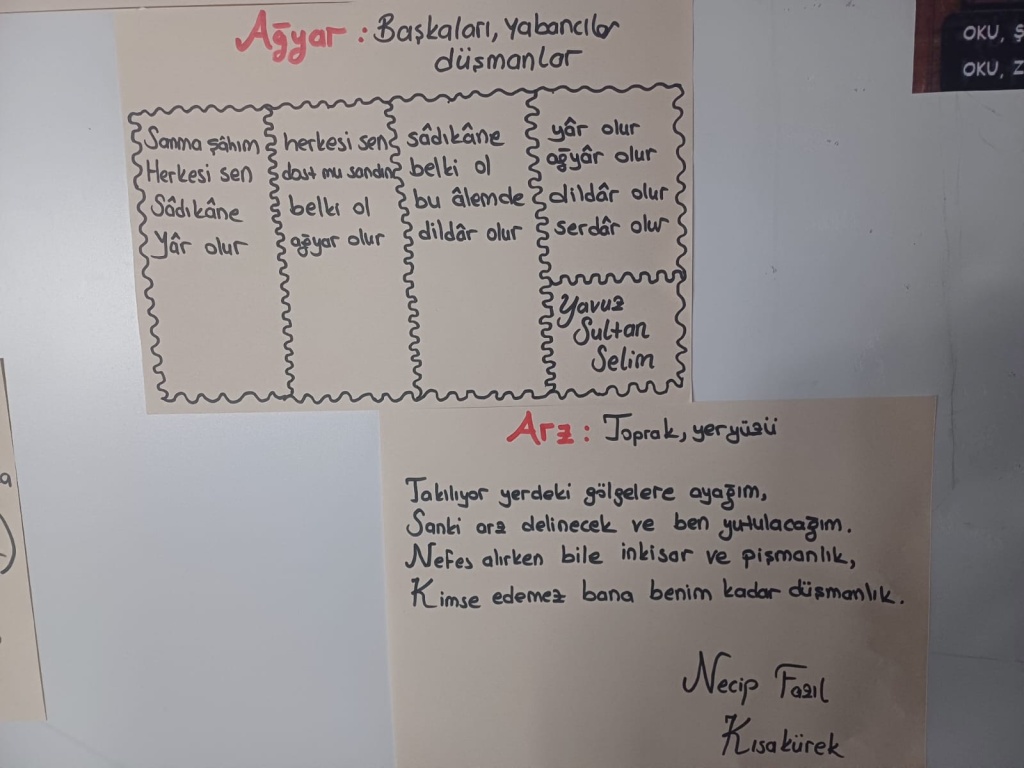 Ağyar : Başkaları, yabancılar
düşmanlar
Sanma şâhım herkesi sen sâdıkâne yâr olur
Herkesi sen dost mu sandın belki ol ağyâr olur
Sâdıkâne belki ol bu âlemde dildâr olur
Yâr olur ağyar olur dildâr olur serdâr olur
Yavuz
Sultan
Selim
Arz : Toprak, yeryüzü
Takılıyor yerdeki gölgelere ayağım,
Sanki arz delinecek ve ben yutulacağım.
Nefes alırken bile inkisar ve pişmanlık,
Kimse edemez bana benim kadar düşmanlık.
Necip Fazıl
Kısakürek
OKU, Ş
OKU, Z
a